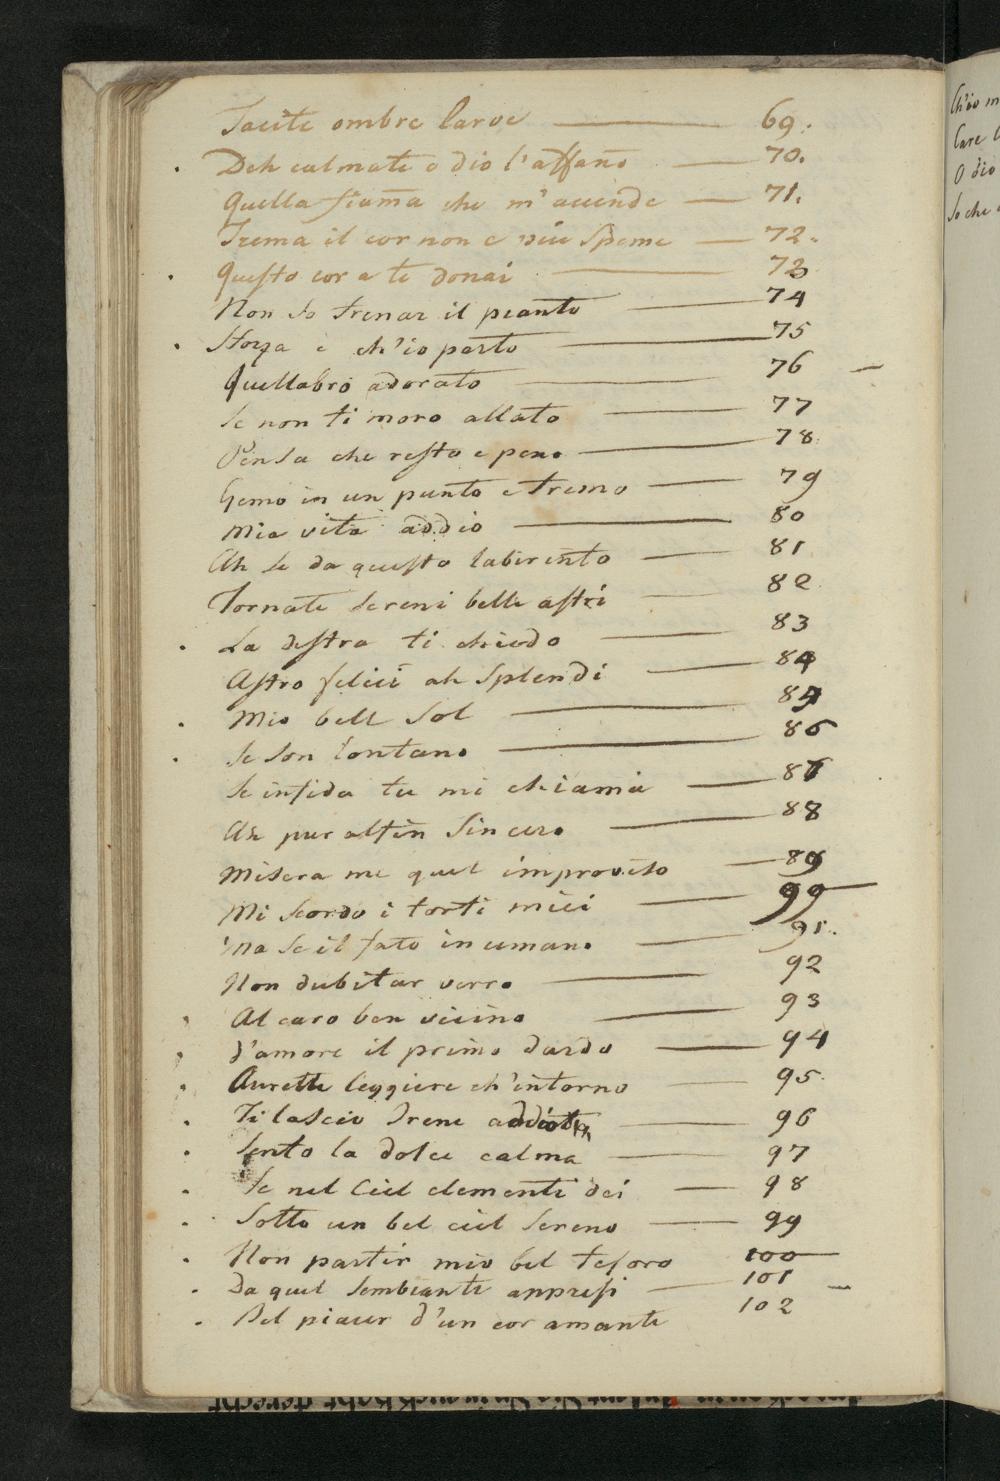 Tacite ombre larve — 69.
. Deh calmate o dio l'affano — 70.
Quella fiama che m'accende — 71.
Trema il cor non e piu speme — 72.
. Questo cor a te donai — 73
Non so frenar il pianto — 74
. Forza è ch'io parto — 75
Quellabro adorato — 76 —
Se non ti moro allato — 77
Pensa che resto e peno — 78.
Gemo in un punto e fremo — 79
Mia vita addio — 80
Ah se da questo labirinto — 81
Tornate sereni belle astri — 82
. La destra ti chiedo — 83
Astro felici ah splendi — 84
. Mio bell Sol — 85
. Se son lontano — 86
Se infida tu mi chiama — 87
Ah pur alfin sincero — 88
Misera me qual improviso — 89
Mi scordo i torti miei —
Ma se il fato in umano — 91.
Non dubitar verro — 92
. Al caro ben vicino — 93
. D'amore il primo dardo — 94
. Aurette leggiere ch'intorno — 95.
. Ti lascio Irene — 96
. Sento la dolce calma — 97
. Se nel Ciel clementi dei — 98
. Sotto un bel ciel sereno — 99
. Non partir mio bel tesoro 100
. Da quel sembiante appresi — 101 —
. Bel piacer d'un cor amante 102
Ch'io m
Care
O dio
So che